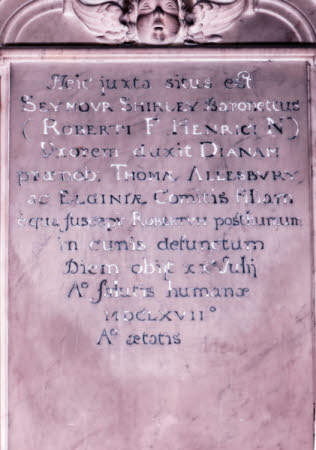 Heic juxta situs est
SEYMOVR SHIRLEY Baronettus
( ROBERTI F HENRICI N )
Vxorem duxit DIANAM
prænob: THOMÆ AILESBVRY
ac ELGINIÆ Comitis filiam
e qua suscepit ROBERTUM posthumum
in cunis defunctum
Diem obijt xx Julij
A° salutis humanæ
MDCLXVII°
A° ætatis